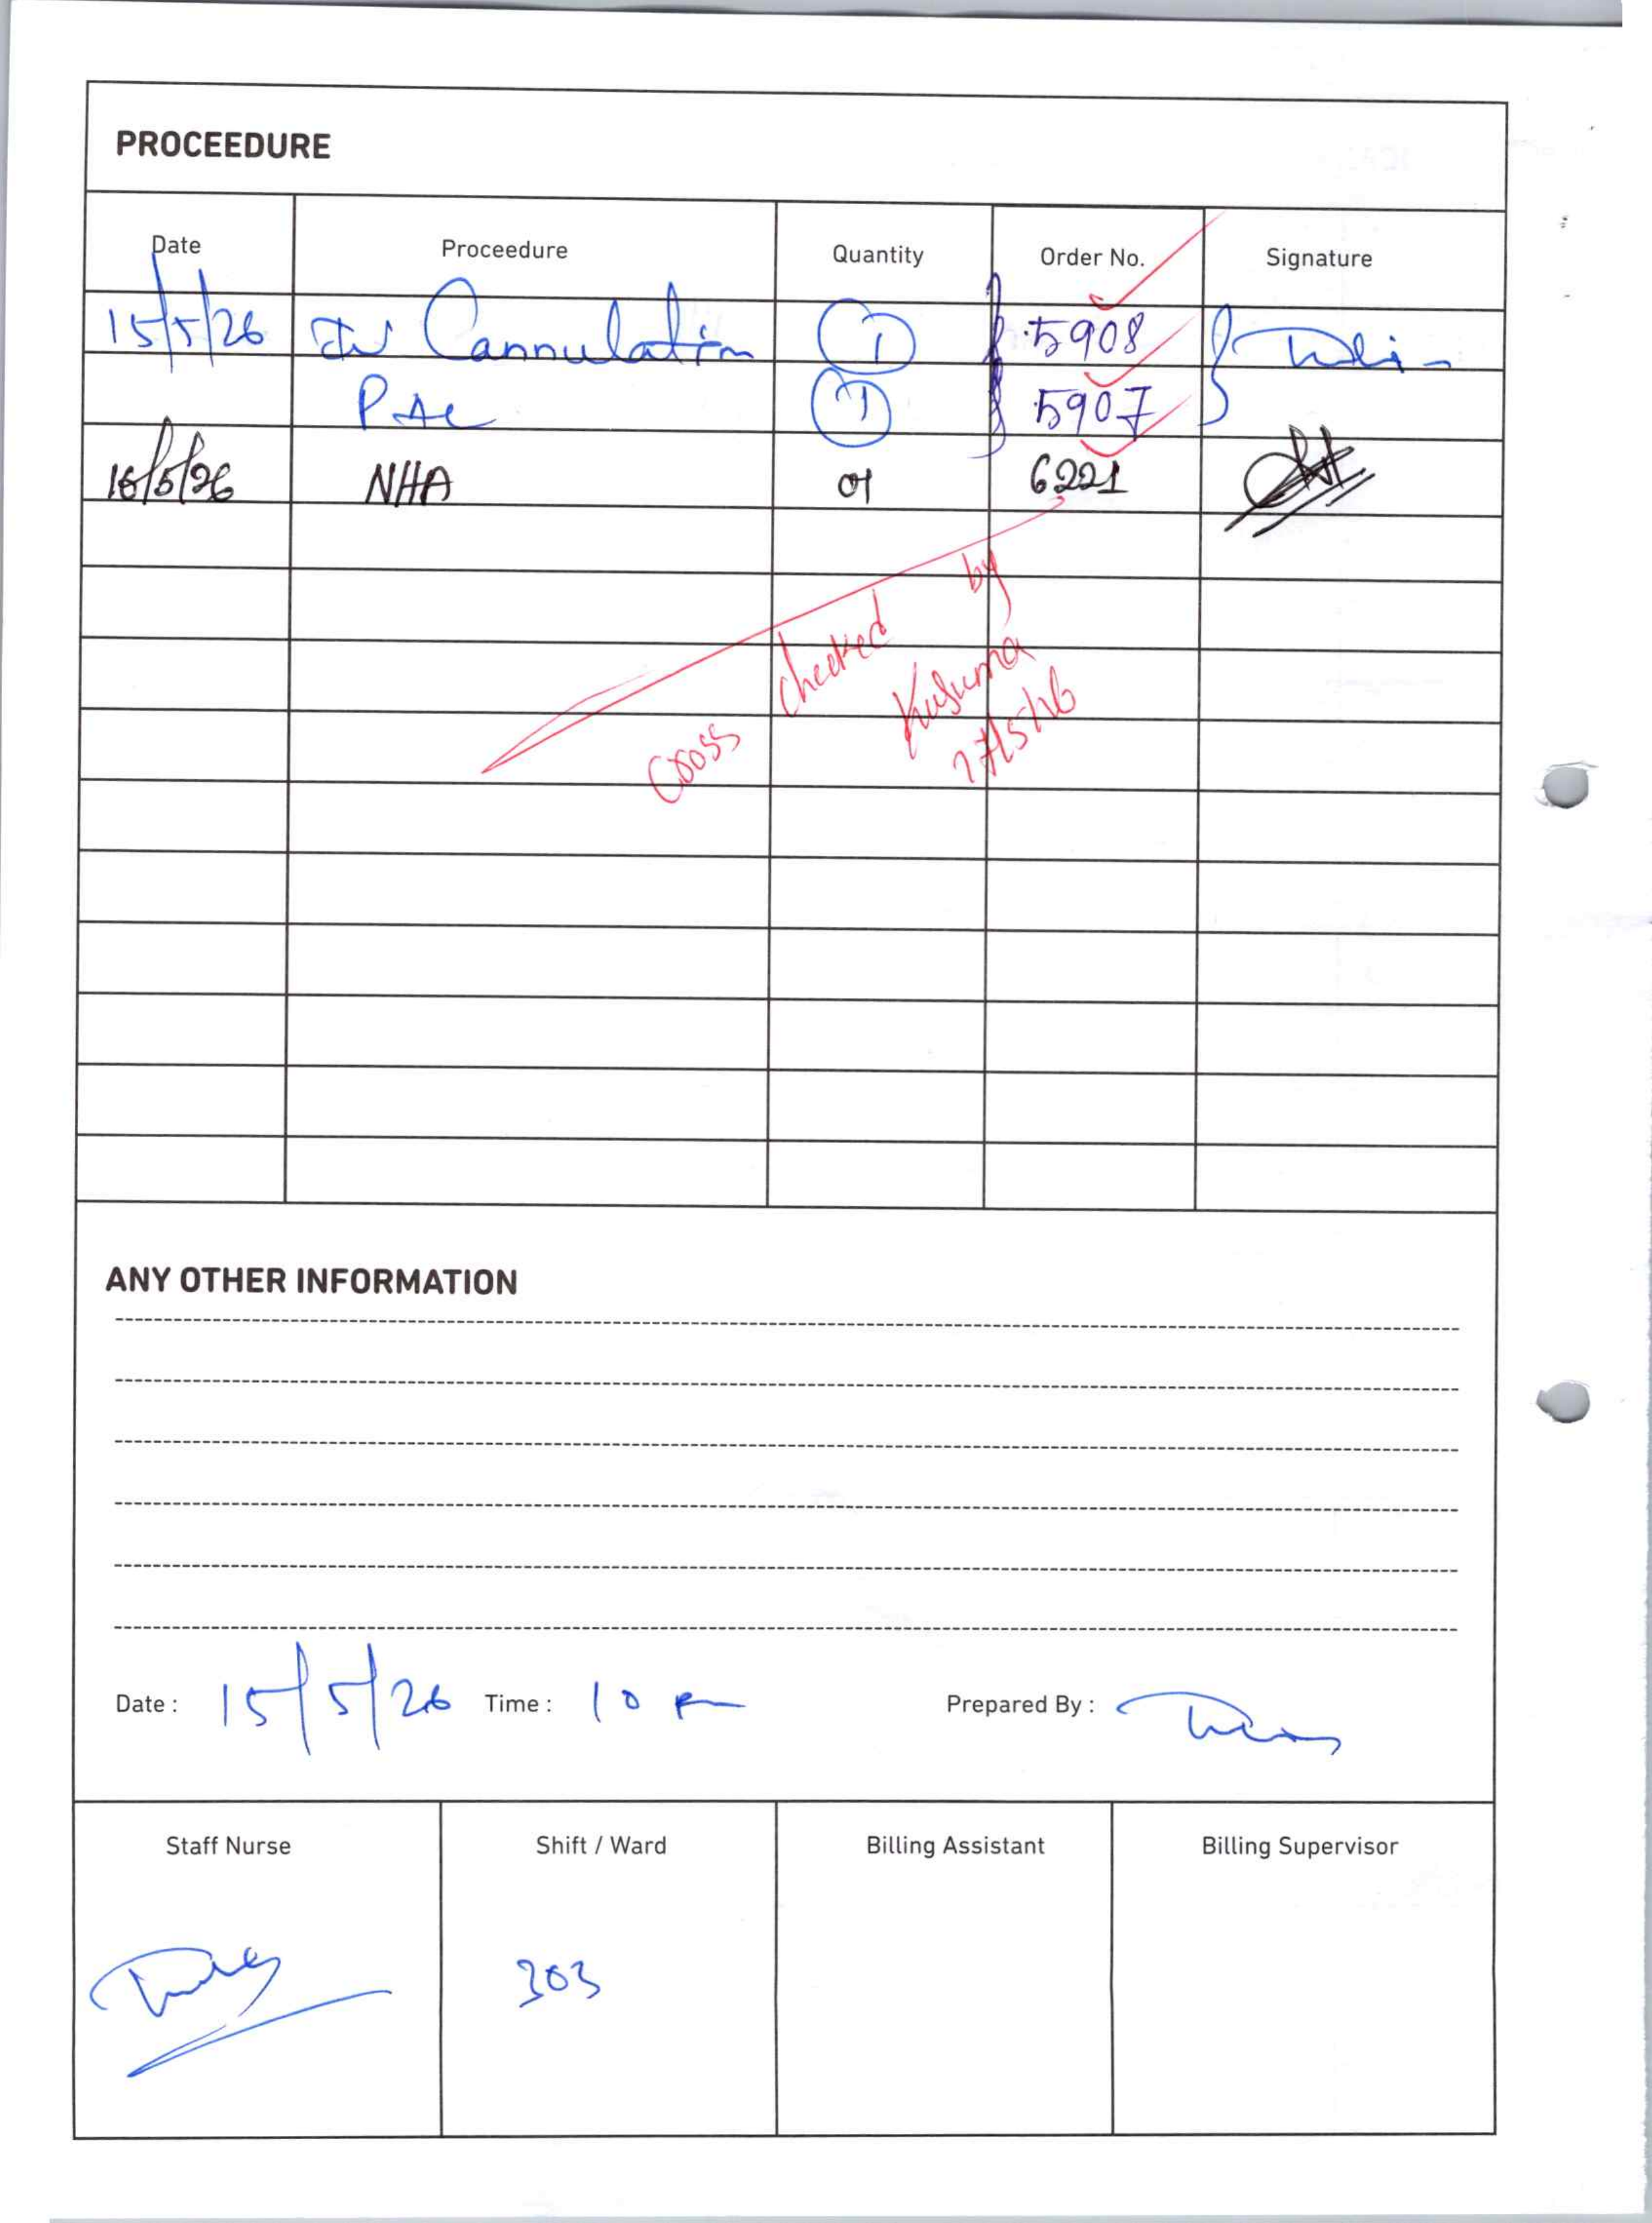 PROCEEDURE
Date Proceedure Quantity Order No. Signature
15/5/26 IV Cannulation 1 5908
PAC 1 5907
16/5/26 NHA 01 6221
Cross checked by
Kusuma
ANY OTHER INFORMATION
Date : 15/5/26 Time : 10 Prepared By :
Staff Nurse Shift / Ward Billing Assistant Billing Supervisor
303